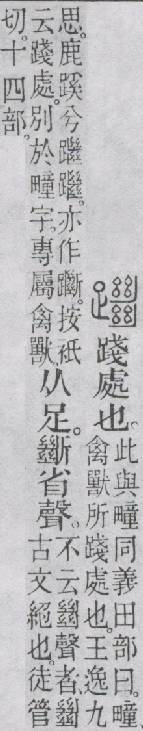 踐處也。
此與疃同義田部曰。疃、
禽獸所踐處也。王逸九
思。鹿蹊兮𨇨𨇨。亦作躖。按祇
云踐處。別於疃字、專屬禽獸。
从足。斷省聲。
不云𢇍聲者、𢇍
古文絕也。徒管
切。十四部。